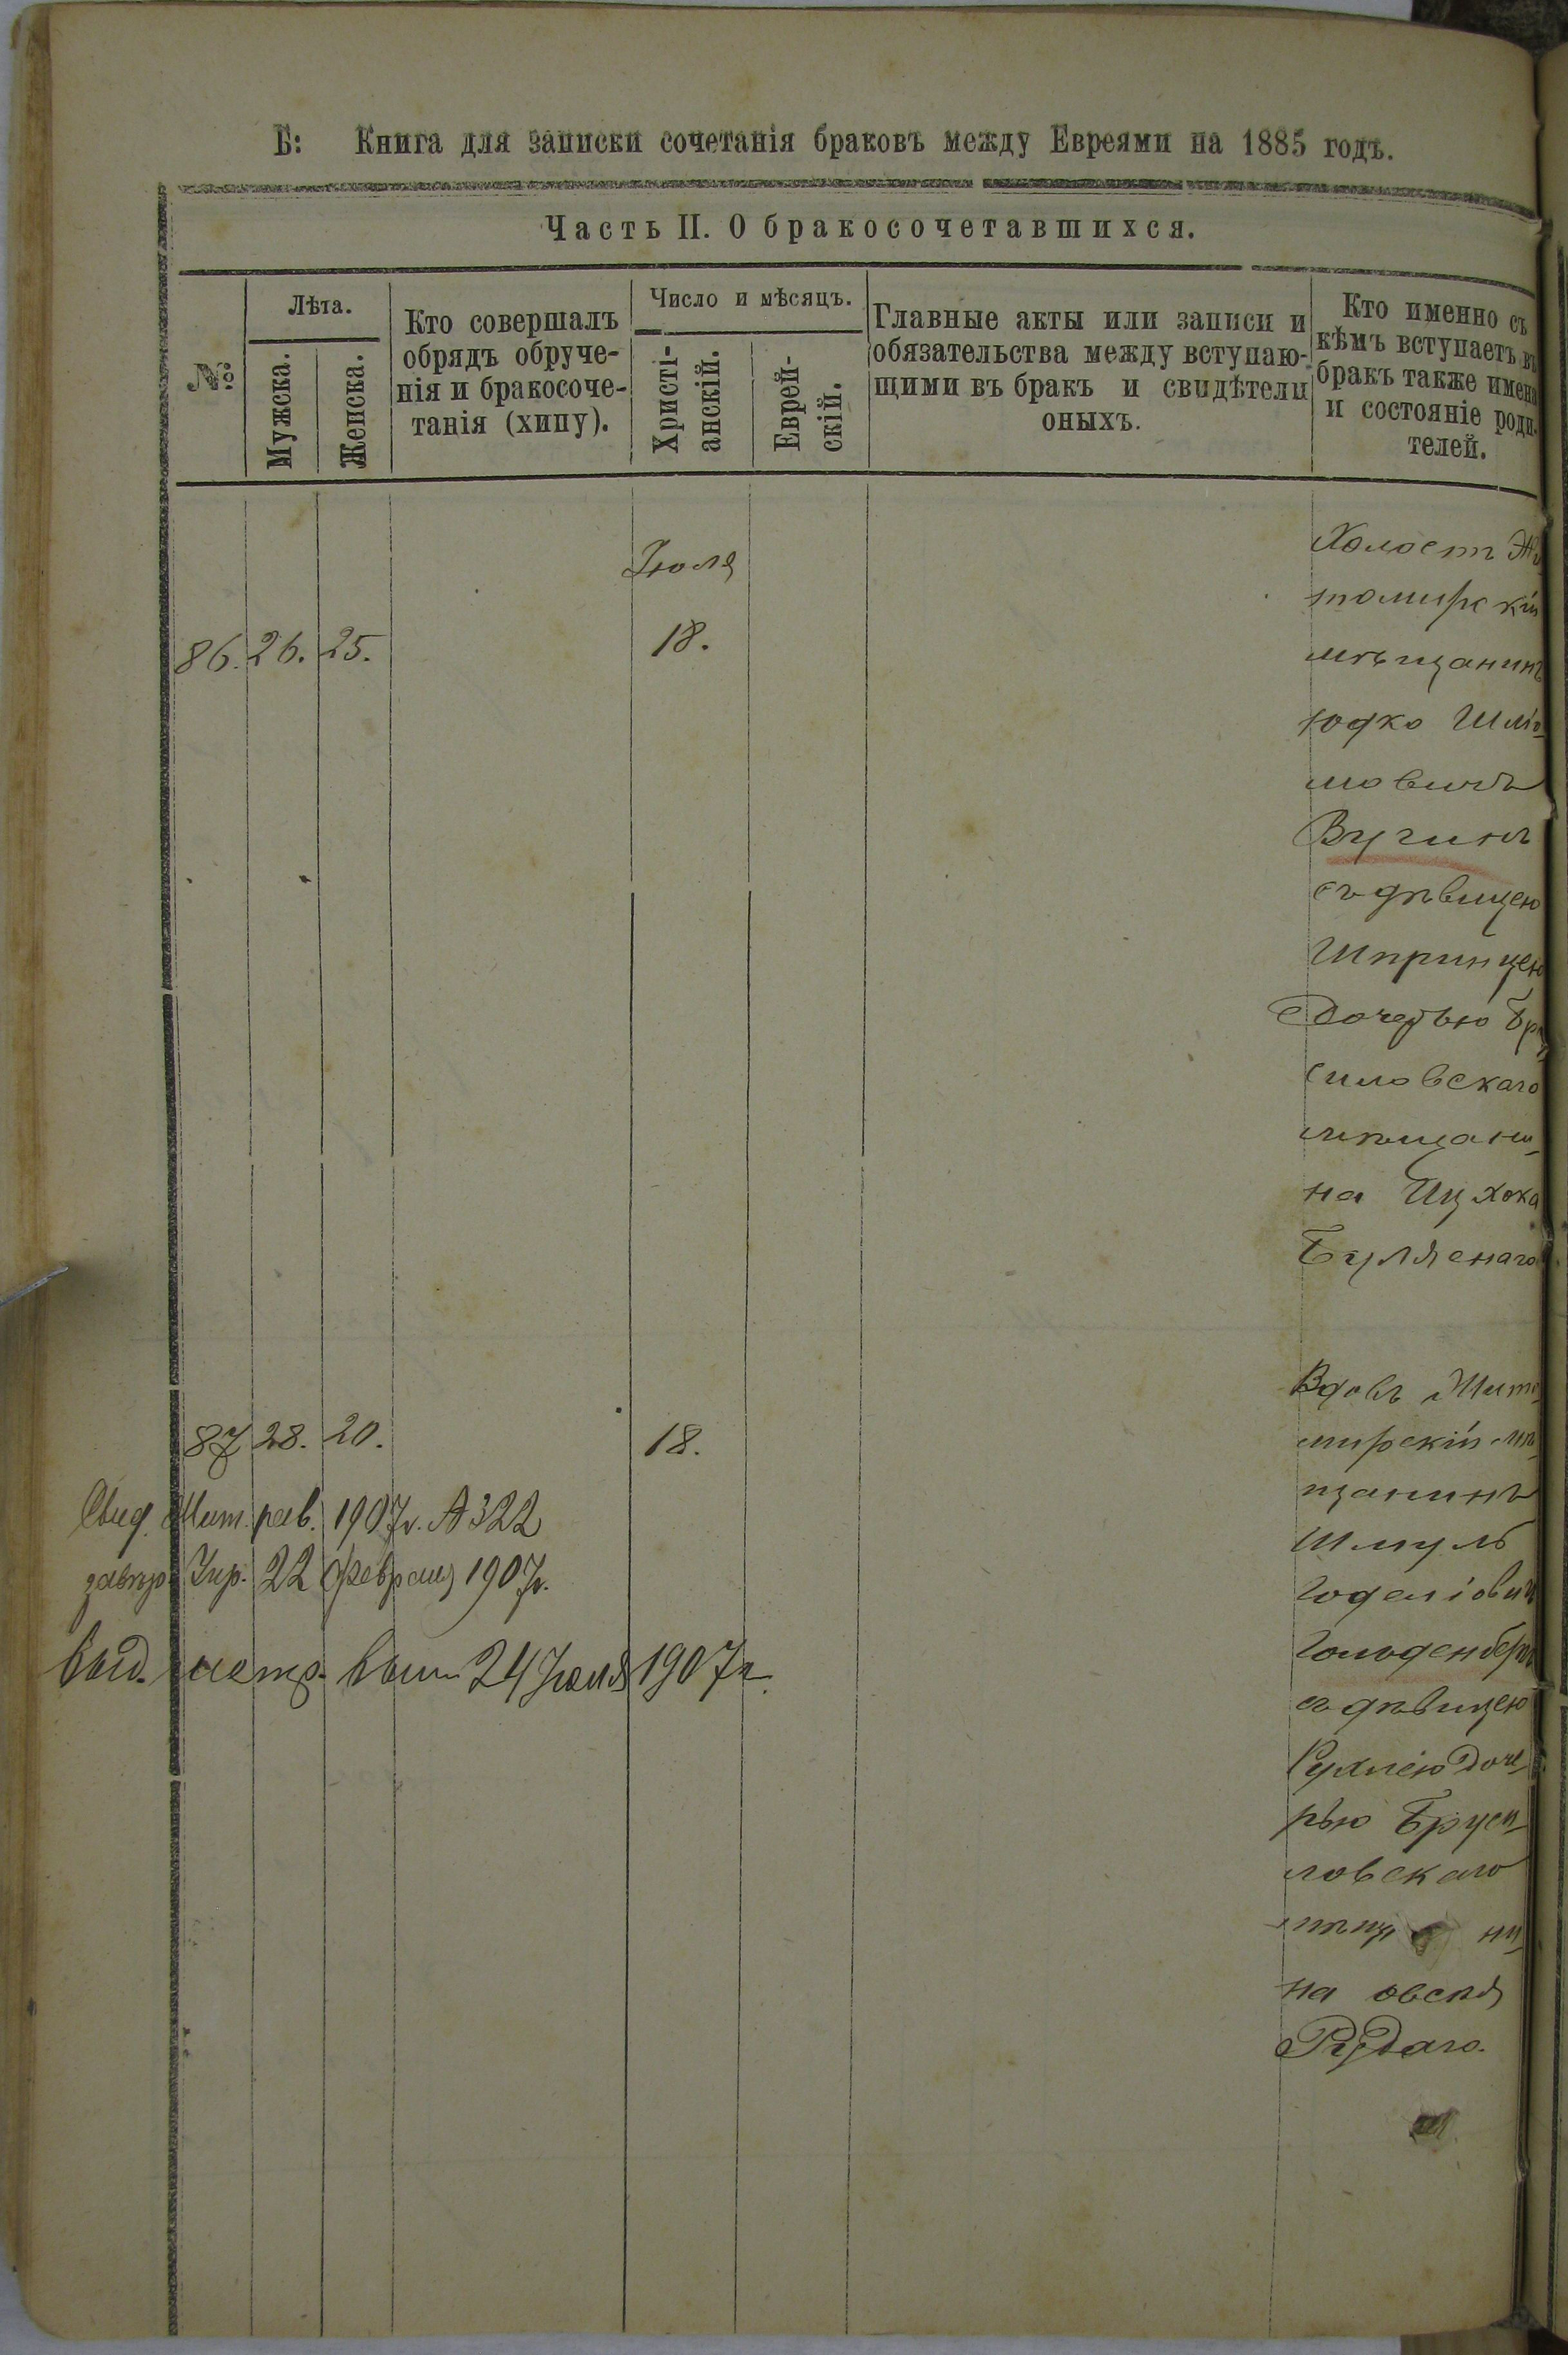 Б: Книга для записки сочетанія браковъ между Евреями на 1885 годъ.
Часть II. О бракосочетавшихся.
№
Лѣта.
Мужска.
Женска.
Кто совершалъ
обрядъ обруче-
нія и бракосоче-
танія (хипу).
Число и мѣсяцъ.
Христі-
анскій.
Еврей-
скій.
Главные акты или записи и
обязательства между вступаю-
щими въ бракъ и свидѣтели
оныхъ.
Кто именно съ
кѣмъ вступаетъ въ
бракъ также имена
и состояніе роди-
телей.
Іюля
86. 26. 25. 18.
Холостъ Жи
томирскій
мѣщанинъ
Юдко Шліо
мовичъ
Вугинъ
съ дѣвицею
Шпринцею
Дочерью Бру
силовскаго
мѣщани-
на Ицхока
Бурлянаго
87 28. 20. 18.
Вдовъ Жито
мирскій мѣ
щанинъ
Шмуль
Годеліовичъ
Гольденбергъ
съ дѣвицею
Рухлею Доче
рью Бруси
ловскаго
мѣща ни
на Овсея
Рудаго.
Свид. Жит. рав. 1907г. № 322
завѣр. Упр. 22 февраля 1907г.
выд. метр. вып 24 Іюля 1907г.